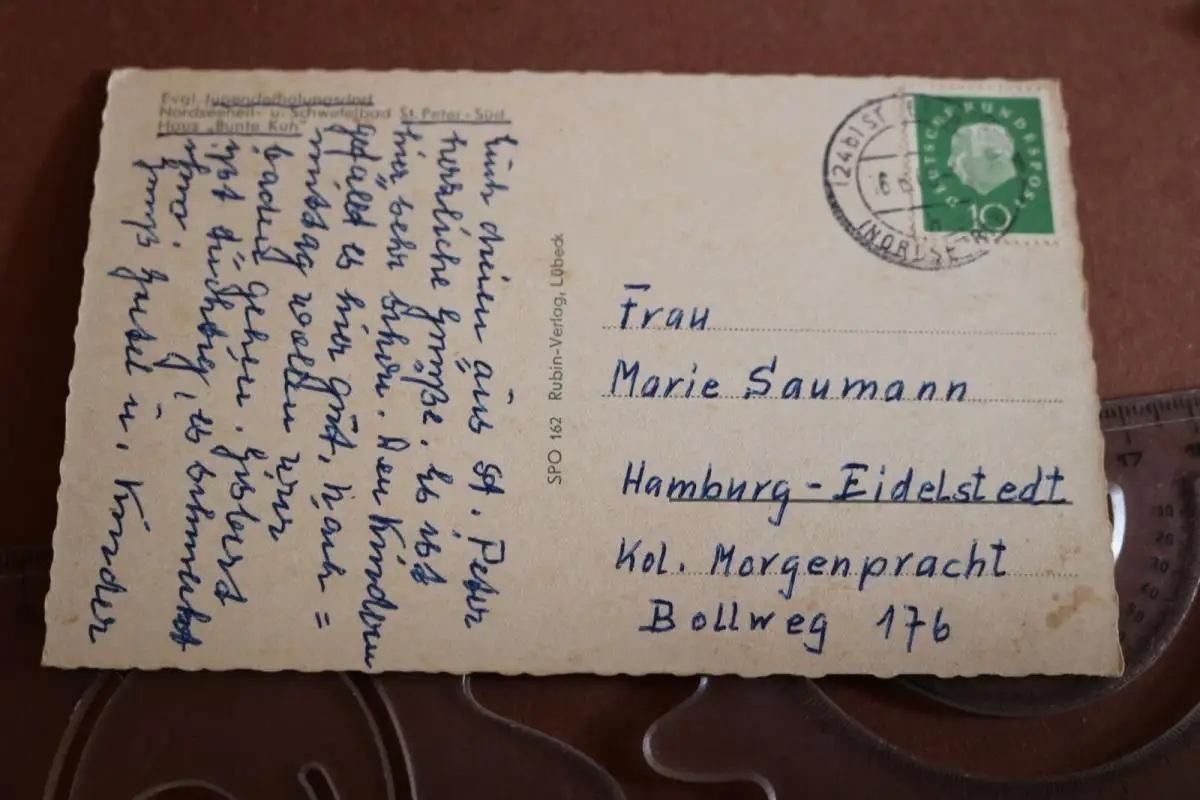 Evgl. Jugenderholungsdorf
Nordseeheil- u. Schwefelbad St. Peter-Süd
Haus „Bunte Kuh"
Euch dreien aus St. Peter
herzliche Grüße. Es ist
hier sehr schön. Den Kindern
gefällt es hier gut, Nach=
mittag wollen wir
baden gehen.
ißt tüchtig, es schmeckt
ihm.
u. Kinder
SPO 162 Rubin-Verlag, Lübeck
(24b) ST
(NORDSEE
DEUTSCHE BUNDESPOST
10
Frau
Marie Saumann
Hamburg-Eidelstedt
Kol. Morgenpracht
Bollweg 17b
17
10
20
30